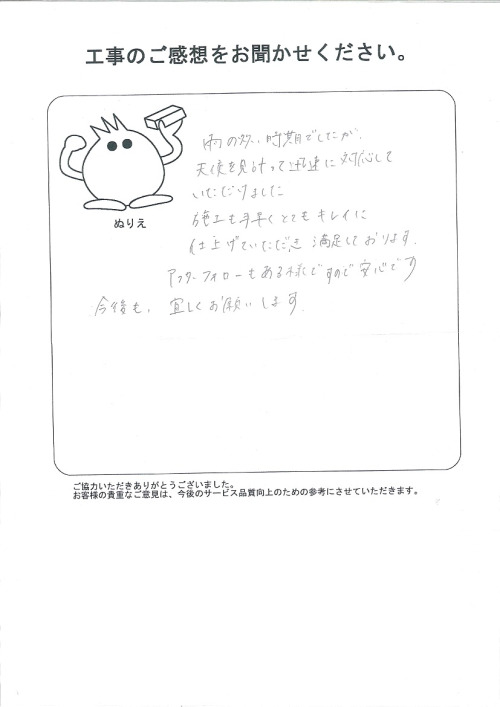 工事のご感想をお聞かせください。
ぬりえ
雨の多い時期でしたが、
天候を見計って迅速に対応して
いただけました
施工も手早くとてもキレイに
仕上げていただき 満足しております。
アフターフォローもある様ですので安心です
今後も、宜しくお願いします。
ご協力いただきありがとうございました。
お客様の貴重なご意見は、今後のサービス品質向上のための参考にさせていただきます。